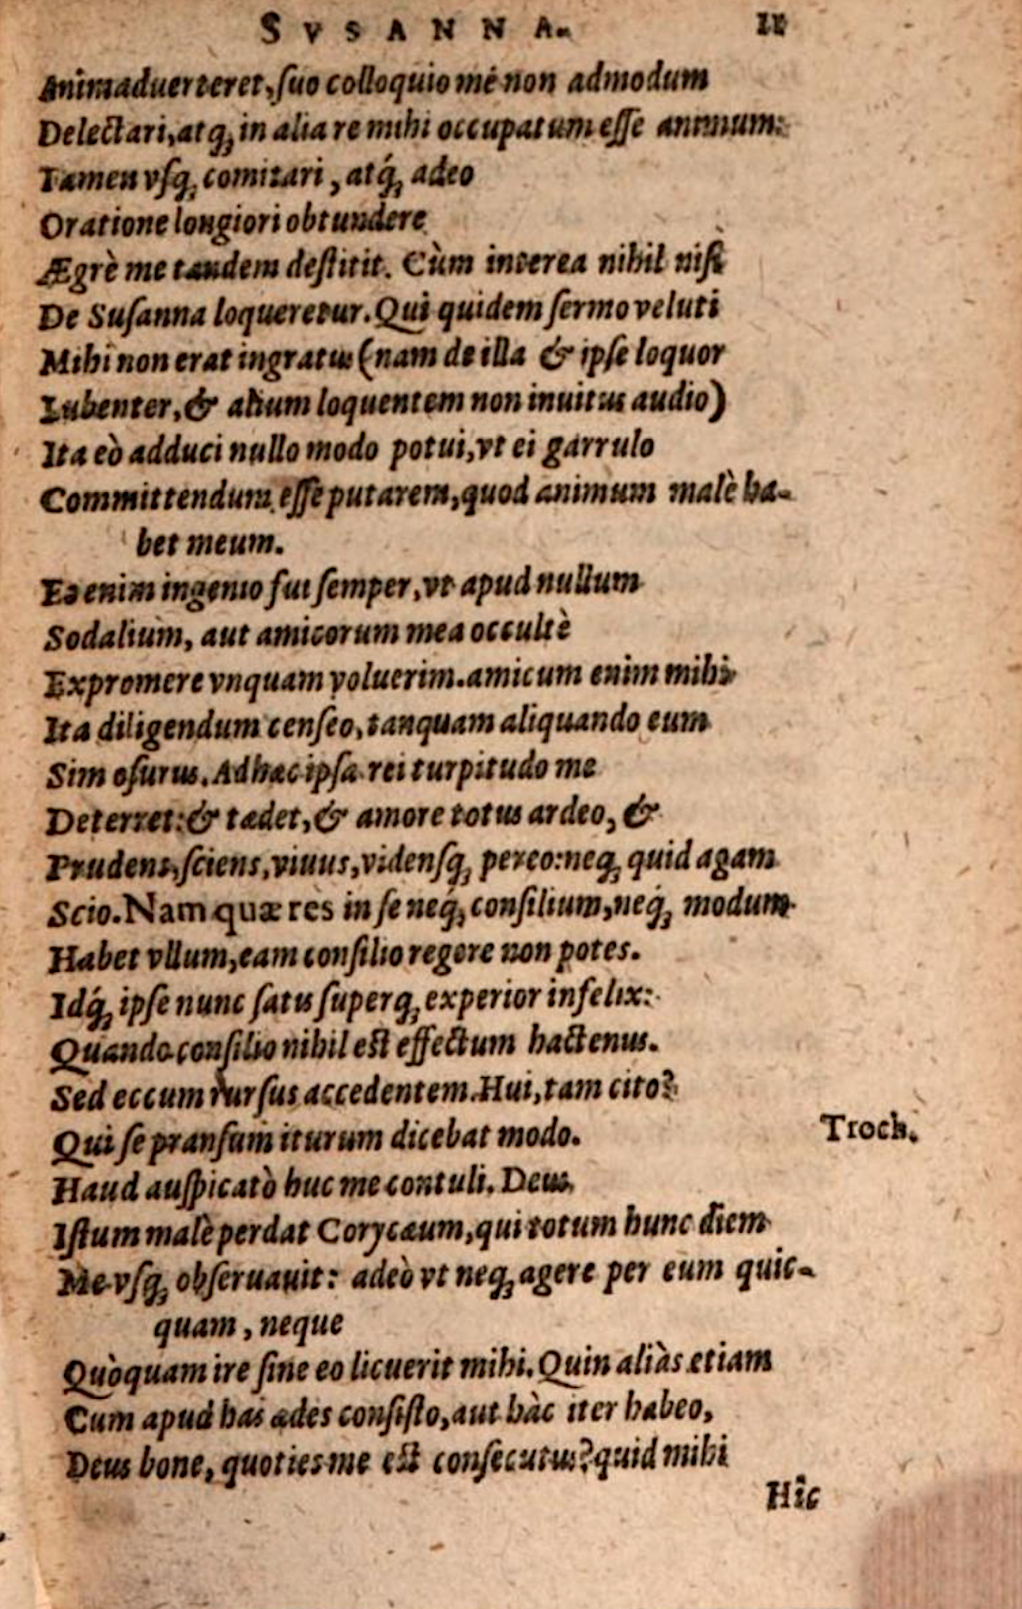 SVSANNA. 11
Animaduerteret, ſuo colloquio mé non admodum
Delectari, atq́; in alia re mihi occupatum eſſe animum:
Tamen vſq; comitari, atq́; adeo
Oratione longiori obtundere
Ægrè me tandem deſtitit. Cùm interea nihil niſi
De Suſanna loqueretur. Qui quidem ſermo veluti
Mihi non erat ingratus (nam de illa & ipſe loquor
Lubenter, & alium loquentem non inuitus audio)
Ita eò adduci nullo modo potui, vt ei garrulo
Committendum eſſe putarem, quod animum malè ha-
bet meum.
Eo enim ingenio fui ſemper, vt apud nullum
Sodalium, aut amicorum mea occultè
Expromere vnquam voluerim. amicum enim mihi
Ita diligendum cenſeo, tanquam aliquando eum
Sim oſurus. Ad hæc ipſa rei turpitudo me
Deterret: & tædet, & amore totus ardeo, &
Prudens, ſciens, viuus, vidensq; pereo: neq; quid agam
Scio. Nam quæ res in ſe neq́; conſilium, neq́; modum
Habet vllum, eam conſilio regere non potes.
Idq́; ipſe nunc ſatis ſuperq; experior infelix:
Quando conſilio nihil eſt effectum hactenus.
Sed eccum rurſus accedentem. Hui, tam cito?
Qui ſe pranſum iturum dicebat modo. Troch.
Haud auſpicatò huc me contuli. Deus
Iſtum malè perdat Corycæum, qui totum hunc diem
Me vſq; obſeruauit: adeò vt neq; agere per eum quic-
quam, neque
Quòquam ire ſine eo licuerit mihi. Quin aliàs etiam
Cum apud has ædes conſiſto, aut hàc iter habeo,
Deus bone, quoties me eſt conſecutus? quid mihi
Hîc